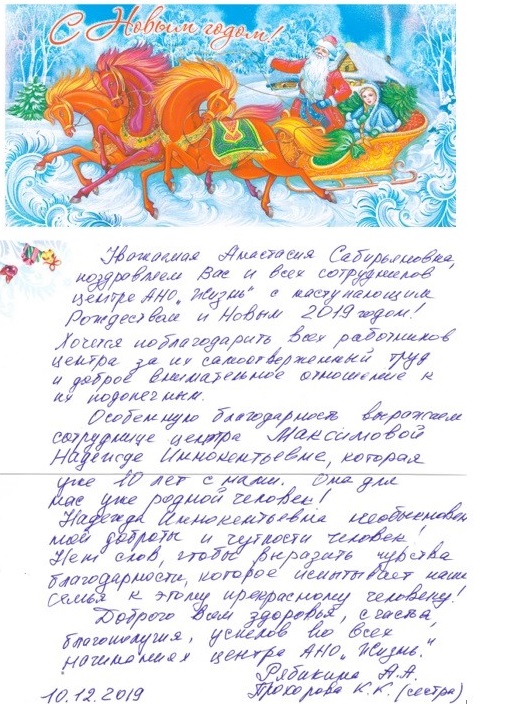 С Новым годом!
Уважаемая Анастасия Сабирьяновна,
поздравляем Вас и всех сотрудников
центра АНО „Жизнь" с наступающим
Рождеством и Новым 2019 годом!
Хочется поблагодарить всех работников
центра за их самоотверженный труд
и доброе внимательное отношение к
их подопечным.
Особенную благодарность выражаем
сотруднице центра Максимовой
Надежде Иннокентьевне, которая
уже 10 лет с нами. Она для
нас уже родной человек!
Надежда Иннокентьевна необыкновен
ной доброты и чуткости человек!
Нет слов, чтобы выразить чувства
благодарности, которое испытывает наша
семья к этому прекрасному человеку!
Доброго Вам здоровья, счастья,
благополучия, успехов во всех
начинаниях центра АНО „Жизнь."
Рябикина А.А.
10.12.2019 Прохорова К.К. (сестра)